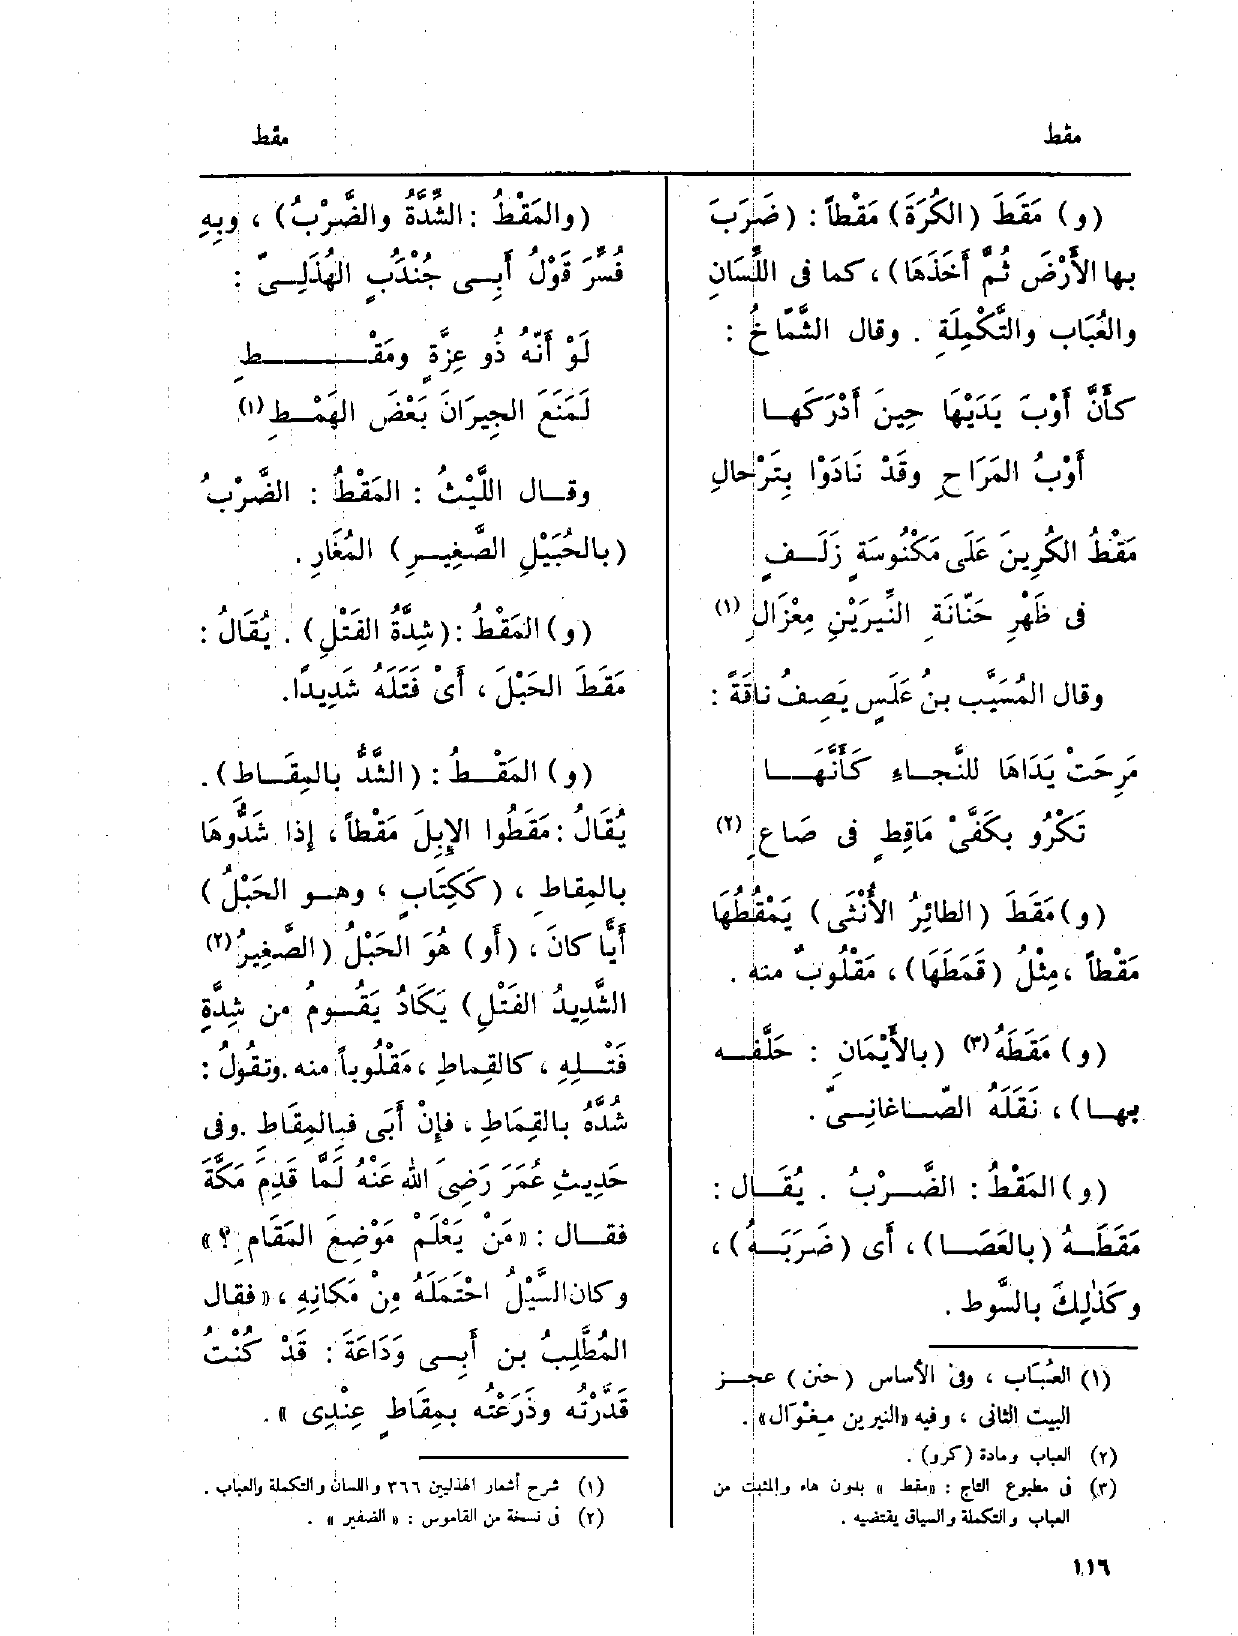 مقط
مقط
(و) مَقَطَ (الكُرَةَ) مَقْطاً : (ضَرَبَ
بها الأَرْضَ ثُمَّ أَخَذَهَا) ، كما فى اللِّسَانِ
والعُبَاب والتَّكْمِلَةِ . وقال الشَّمّاخُ :
كأَنَّ أَوْبَ يَدَيْهَا حِينَ أَدْرَكَهـا
أَوْبُ المَرَاحِ وقَدْ نَادَوْا بِتَرْحالِ
مَقْطُ الكُرِينَ عَلَى مَكْنُوسَةٍ زَلَـفٍ
فى ظَهْرِ حَنّانَةِ النِّيرَيْنِ مِعْزَالِ (١)
وقال المُسَيَّب بنُ عَلَسٍ يَصِفُ ناقَةً :
مَرِحَتْ يَدَاهَا للنَّجـاءِ كَأَنَّهَـــا
تَكْرُو بكَفَّىْ مَاقِطٍ فى صَاعِ (٢)
(و) مَقَطَ (الطائِرُ الأُنْثَى) يَمْقُطُهَا
مَقْطاً ، مِثْلُ (قَمَطَهَا) ، مَقْلُوبٌ منه .
(و) مَقَطَهُ (٣) (بالأَيْمَانِ : حَلَّفـه
بهـا) ، نَقَلَهُ الصّـاغانِـىّ .
(و) المَقْطُ : الضَّـرْبُ . يُقَـال :
مَقَطَـهُ (بالعَصَـا) ، أَى (ضَرَبَـهُ) ،
وكَذلِكَ بالسَّوط .
(١) العُبَاب ، وفى الأساس (حنن) عجـز
البيت الثانى ، وفيه «النيرين مغوال» .
(٢) العباب ومادة (كرو) .
(٣) فى مطبوع التاج : «مقط » بدون هاء والمثبت من
العباب والتكملة والسياق يقتضيه .
(والمَقْطُ : الشِّدَّةُ والضَّرْبُ) ، وبِهِ
فُسِّرَ قَوْلُ أَبِـى جُنْدَبٍ الهُذَلِـىّ :
لَوْ أَنَّهُ ذُو عِزَّةٍ ومَقْـــــــطِ
لَمَنَعَ الجِيرَانَ بَعْضَ الهَمْـطِ (١)
وقـال اللَّيْثُ : المَقْطُ : الضَّرْبُ
(بالحُبَيْلِ الصَّغِيـرِ) المُغَارِ .
(و) المَقْطُ : (شِدَّةُ الفَتْلِ) . يُقَالُ :
مَقَطَ الحَبْلَ ، أَىْ فَتَلَهُ شَدِيدًا.
(و) المَقْـطُ : (الشَّدُّ بالمِقَـاط) .
يُقَالُ : مَقَطُوا الإِبِلَ مَقْطاً ، إذا شَدُّوهَا
بالمِقاط ، (كَكِتَابٍ ، وهـو الحَبْلُ)
أَيًّا كانَ ، (أَو) هُوَ الحَبْلُ (الصَّغِيرُ (٢)
الشَّدِيدُ الفَتْلِ) يَكَادُ يَقُـومُ من شِدَّةِ
فَتْـلِهِ ، كالقِماطِ ، مَقْلُوباً منه .وتقُولُ :
شُدَّهُ بالقِمَاطِ ، فإِنْ أَبَى فبِالمِقَاطِ .وفى
حَدِيثِ عُمَرَ رَضِىَ الله عَنْهُ لَمَّا قَدِمَ مَكَّةَ
فقـال : «مَنْ يَعْلَمْ مَوْضِعَ المَقَامِ ؟ »
وكان السَّيْلُ احْتَمَلَهُ مِنْ مَكانِهِ ، «فقال
المُطَّلِبُ بن أَبِـى وَدَاعَةَ : قَدْ كُنْتُ
قَدَّرْتُه وذَرَعْتُه بمِقَاطٍ عِنْدِى » .
(١) شرح أشعار الهذليين ٣٦٦ واللسان والتكملة والعباب .
(٢) فى نسخة من القاموس : « الضفير » .
١١٦